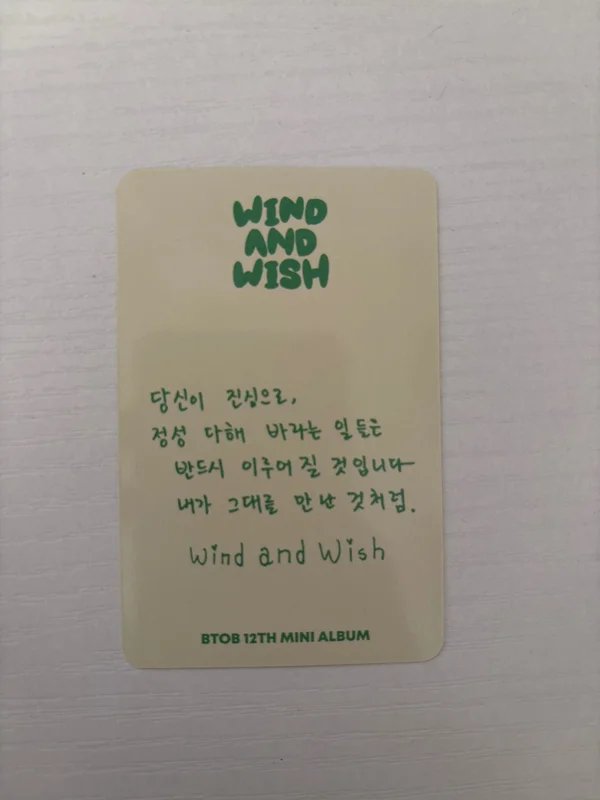 WIND
AND
WISH
당신이 진심으로,
정성 다해 바라는 일들은
반드시 이루어 질 것 입니다
내가 그대를 만난 것처럼.
Wind and Wish
BTOB 12TH MINI ALBUM